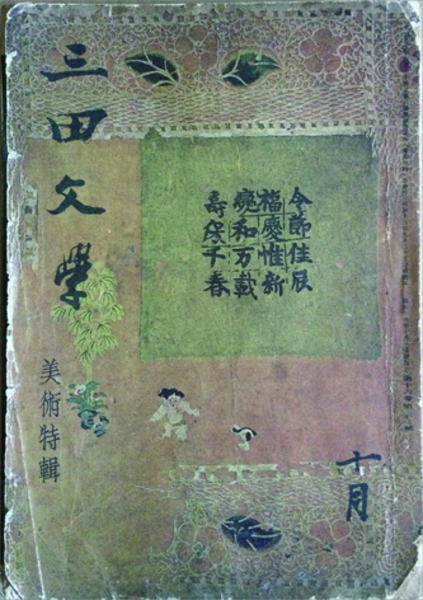 三田文學
美術特輯
令節佳辰
福慶惟新
和万載
壽保千春
十月